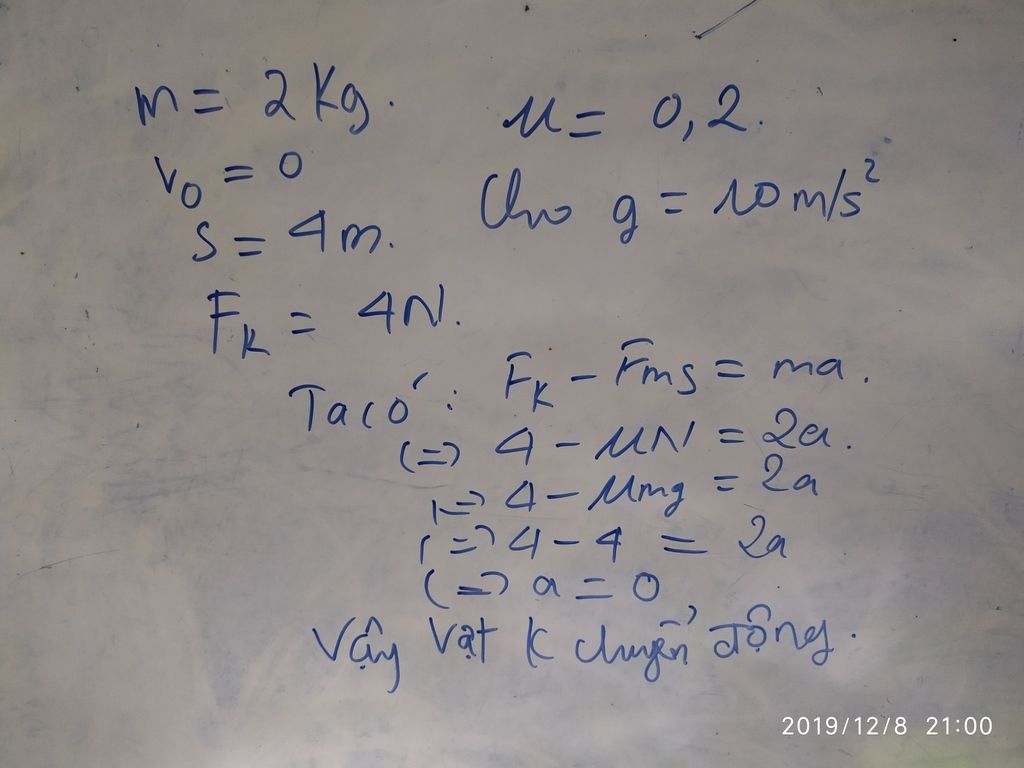 m = 2 Kg.
μ = 0,2.
v₀ = 0
Cho g = 10 m/s²
S = 4 m.
Fₖ = 4N.
Ta có: Fₖ - Fms = ma.
(=) 4 - μN = 2a.
(=) 4 - μmg = 2a
(=) 4 - 4 = 2a
(=) a = 0
Vậy vật k chuyển động.
2019/12/8 21:00